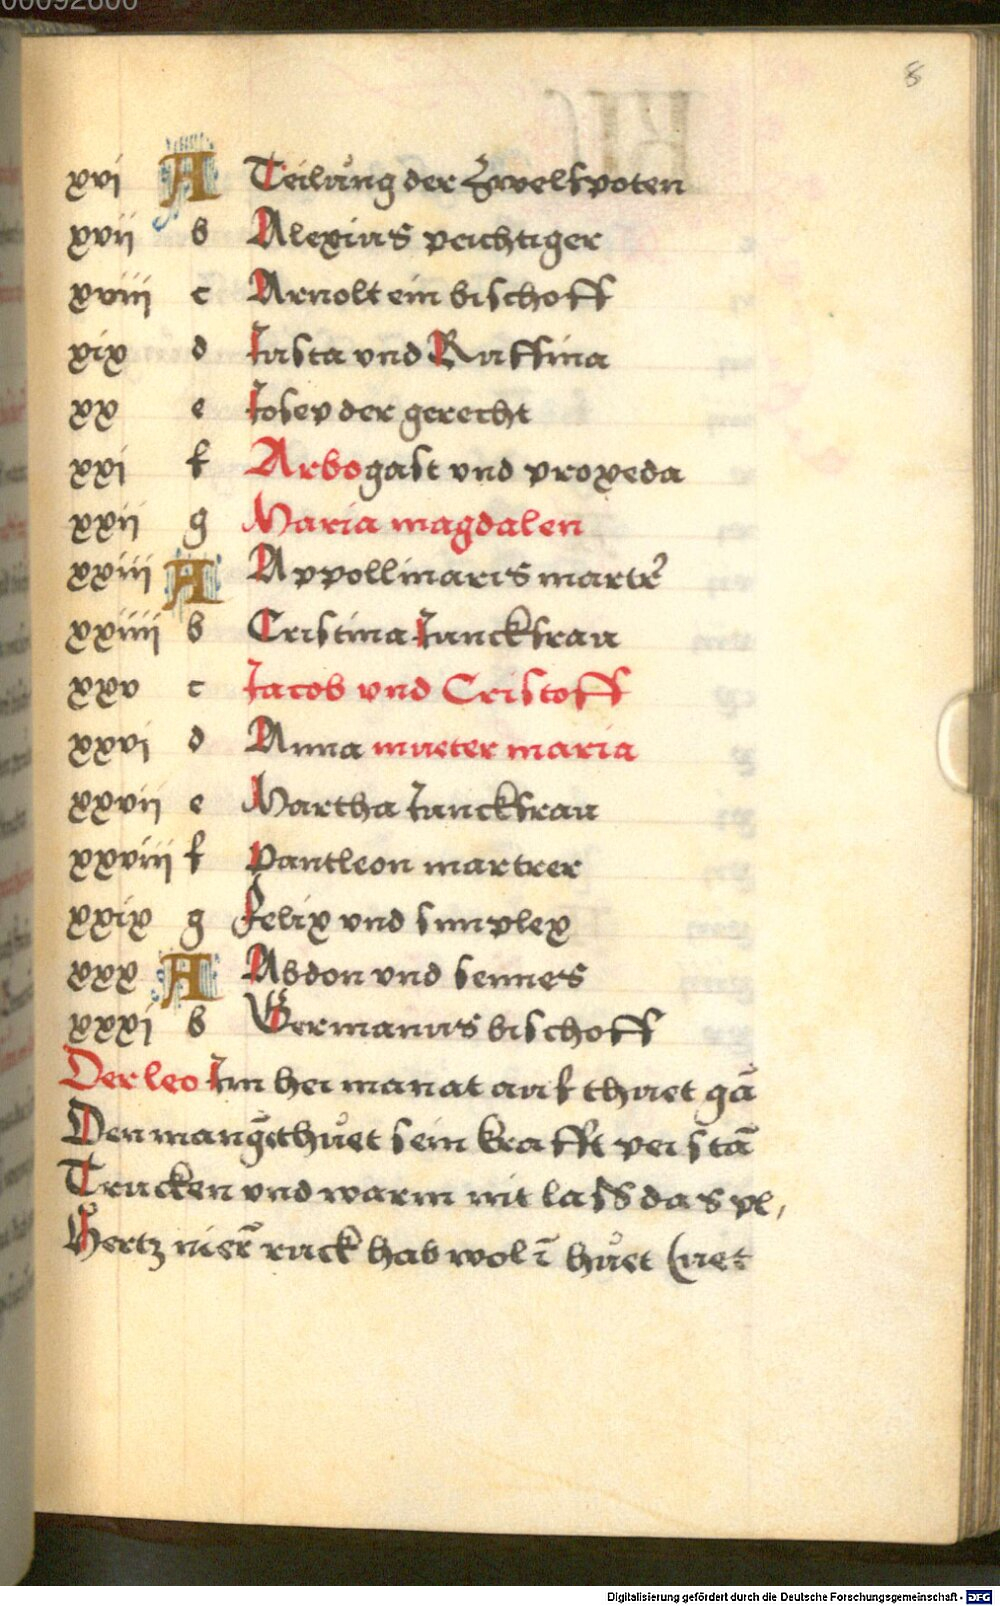 00092600
8
xvi A Teilůng der Zwelfpoten
xvii b Alexius peichtiger
xviii c Arnolt ein bischoff
xix d Justa vnd Ruffina
xx e Josep der gerecht
xxi f Arbogast vnd proxeda
xxii g Maria magdalen
xxiii A Appollinaris martr̉
xxiiii b Cristina Junckfrau
xxv c Jacob vnd Cristoff
xxvi d Anna mueter maria
xxvii e Martha Junckfrau
xxviii f Pantleon martrer
xxix g Felix vnd simplex
xxx A Abdon vnd sennes
xxxi b Germanus bischoff
Der leo Im hei manat auf thuet gā
Den man gethůet sein krafft pei stā
Trucken vnd warm mit lass das pl,
Hertz nier̄ ruck hab wol ī hůet (uet
Digitalisierung gefördert durch die Deutsche Forschungsgemeinschaft - DFG